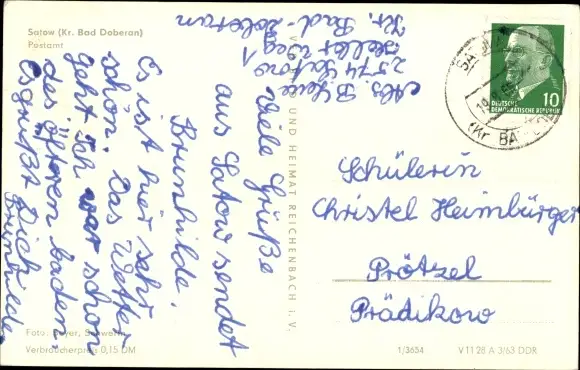 Satow (Kr. Bad Doberan)
Postamt
Viele Grüße
aus Satow sendet
Brunhilde.
Es ist hier sehr
schön. Das Wetter
geht. Ich war schon
des Öfteren baden.
Es grüßt Dich
Brunhilde
2574 Satow 1
Heller Weg
Kr. Bad-Doberan
DEUTSCHE
DEMOKRATISCHE REPUBLIK
10
Schülerin
Christel Heimbürger
Prötzel
Prädikow
UND HEIMAT REICHENBACH i. V.
Foto: Beyer, Schwerin
Verbraucherpreis 0,15 DM
1/3654
V 11 28 A 3/63 DDR